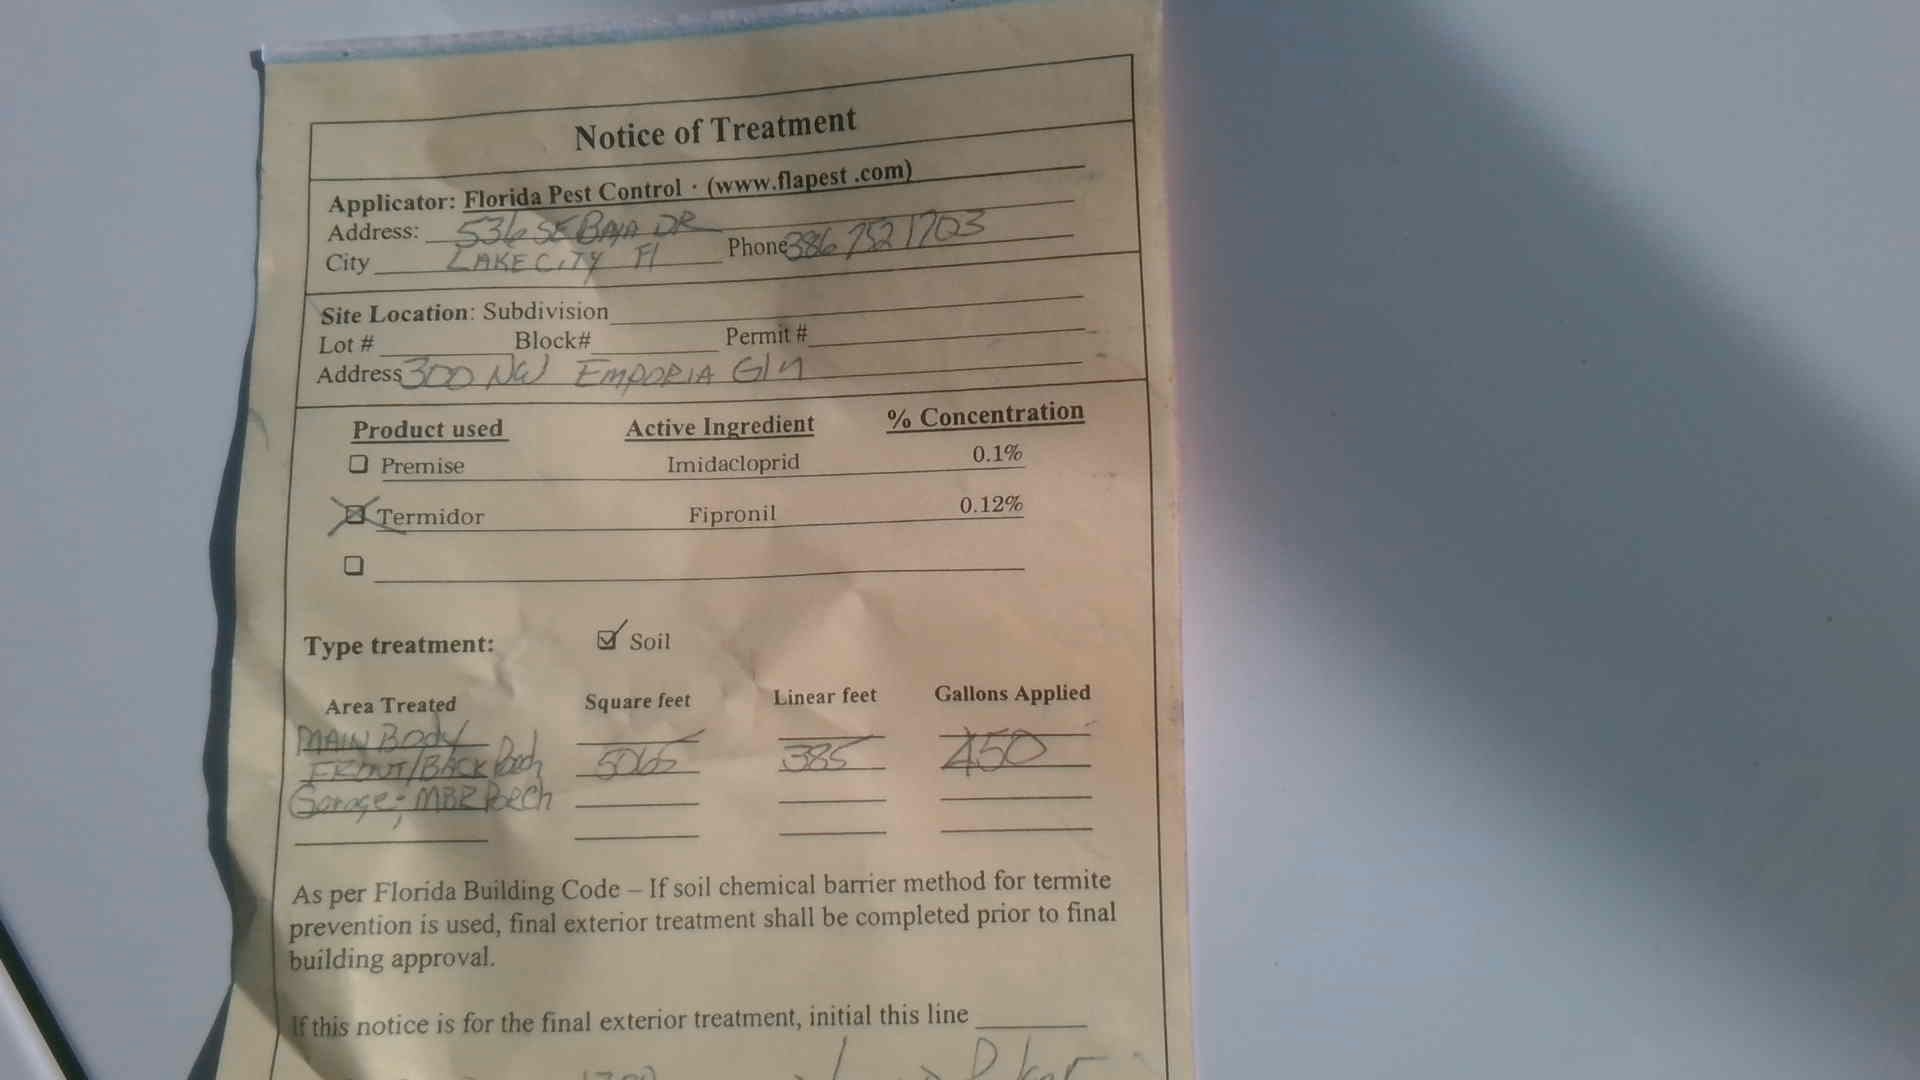 Notice of Treatment
Applicator: Florida Pest Control · (www.flapest .com)
Address: 536 SE BAYA DR
City LAKE CITY Fl Phone 386 752 1703
Site Location: Subdivision
Lot # Block# Permit #
Address 300 NW EMPORIA Gln
Product used Active Ingredient % Concentration
Premise Imidacloprid 0.1%
Termidor Fipronil 0.12%
Type treatment: Soil
Area Treated Square feet Linear feet Gallons Applied
MAIN Body
FRONT/BACK Porch 5065 385 450
Garage; MBR Porch
As per Florida Building Code – If soil chemical barrier method for termite
prevention is used, final exterior treatment shall be completed prior to final
building approval.
If this notice is for the final exterior treatment, initial this line